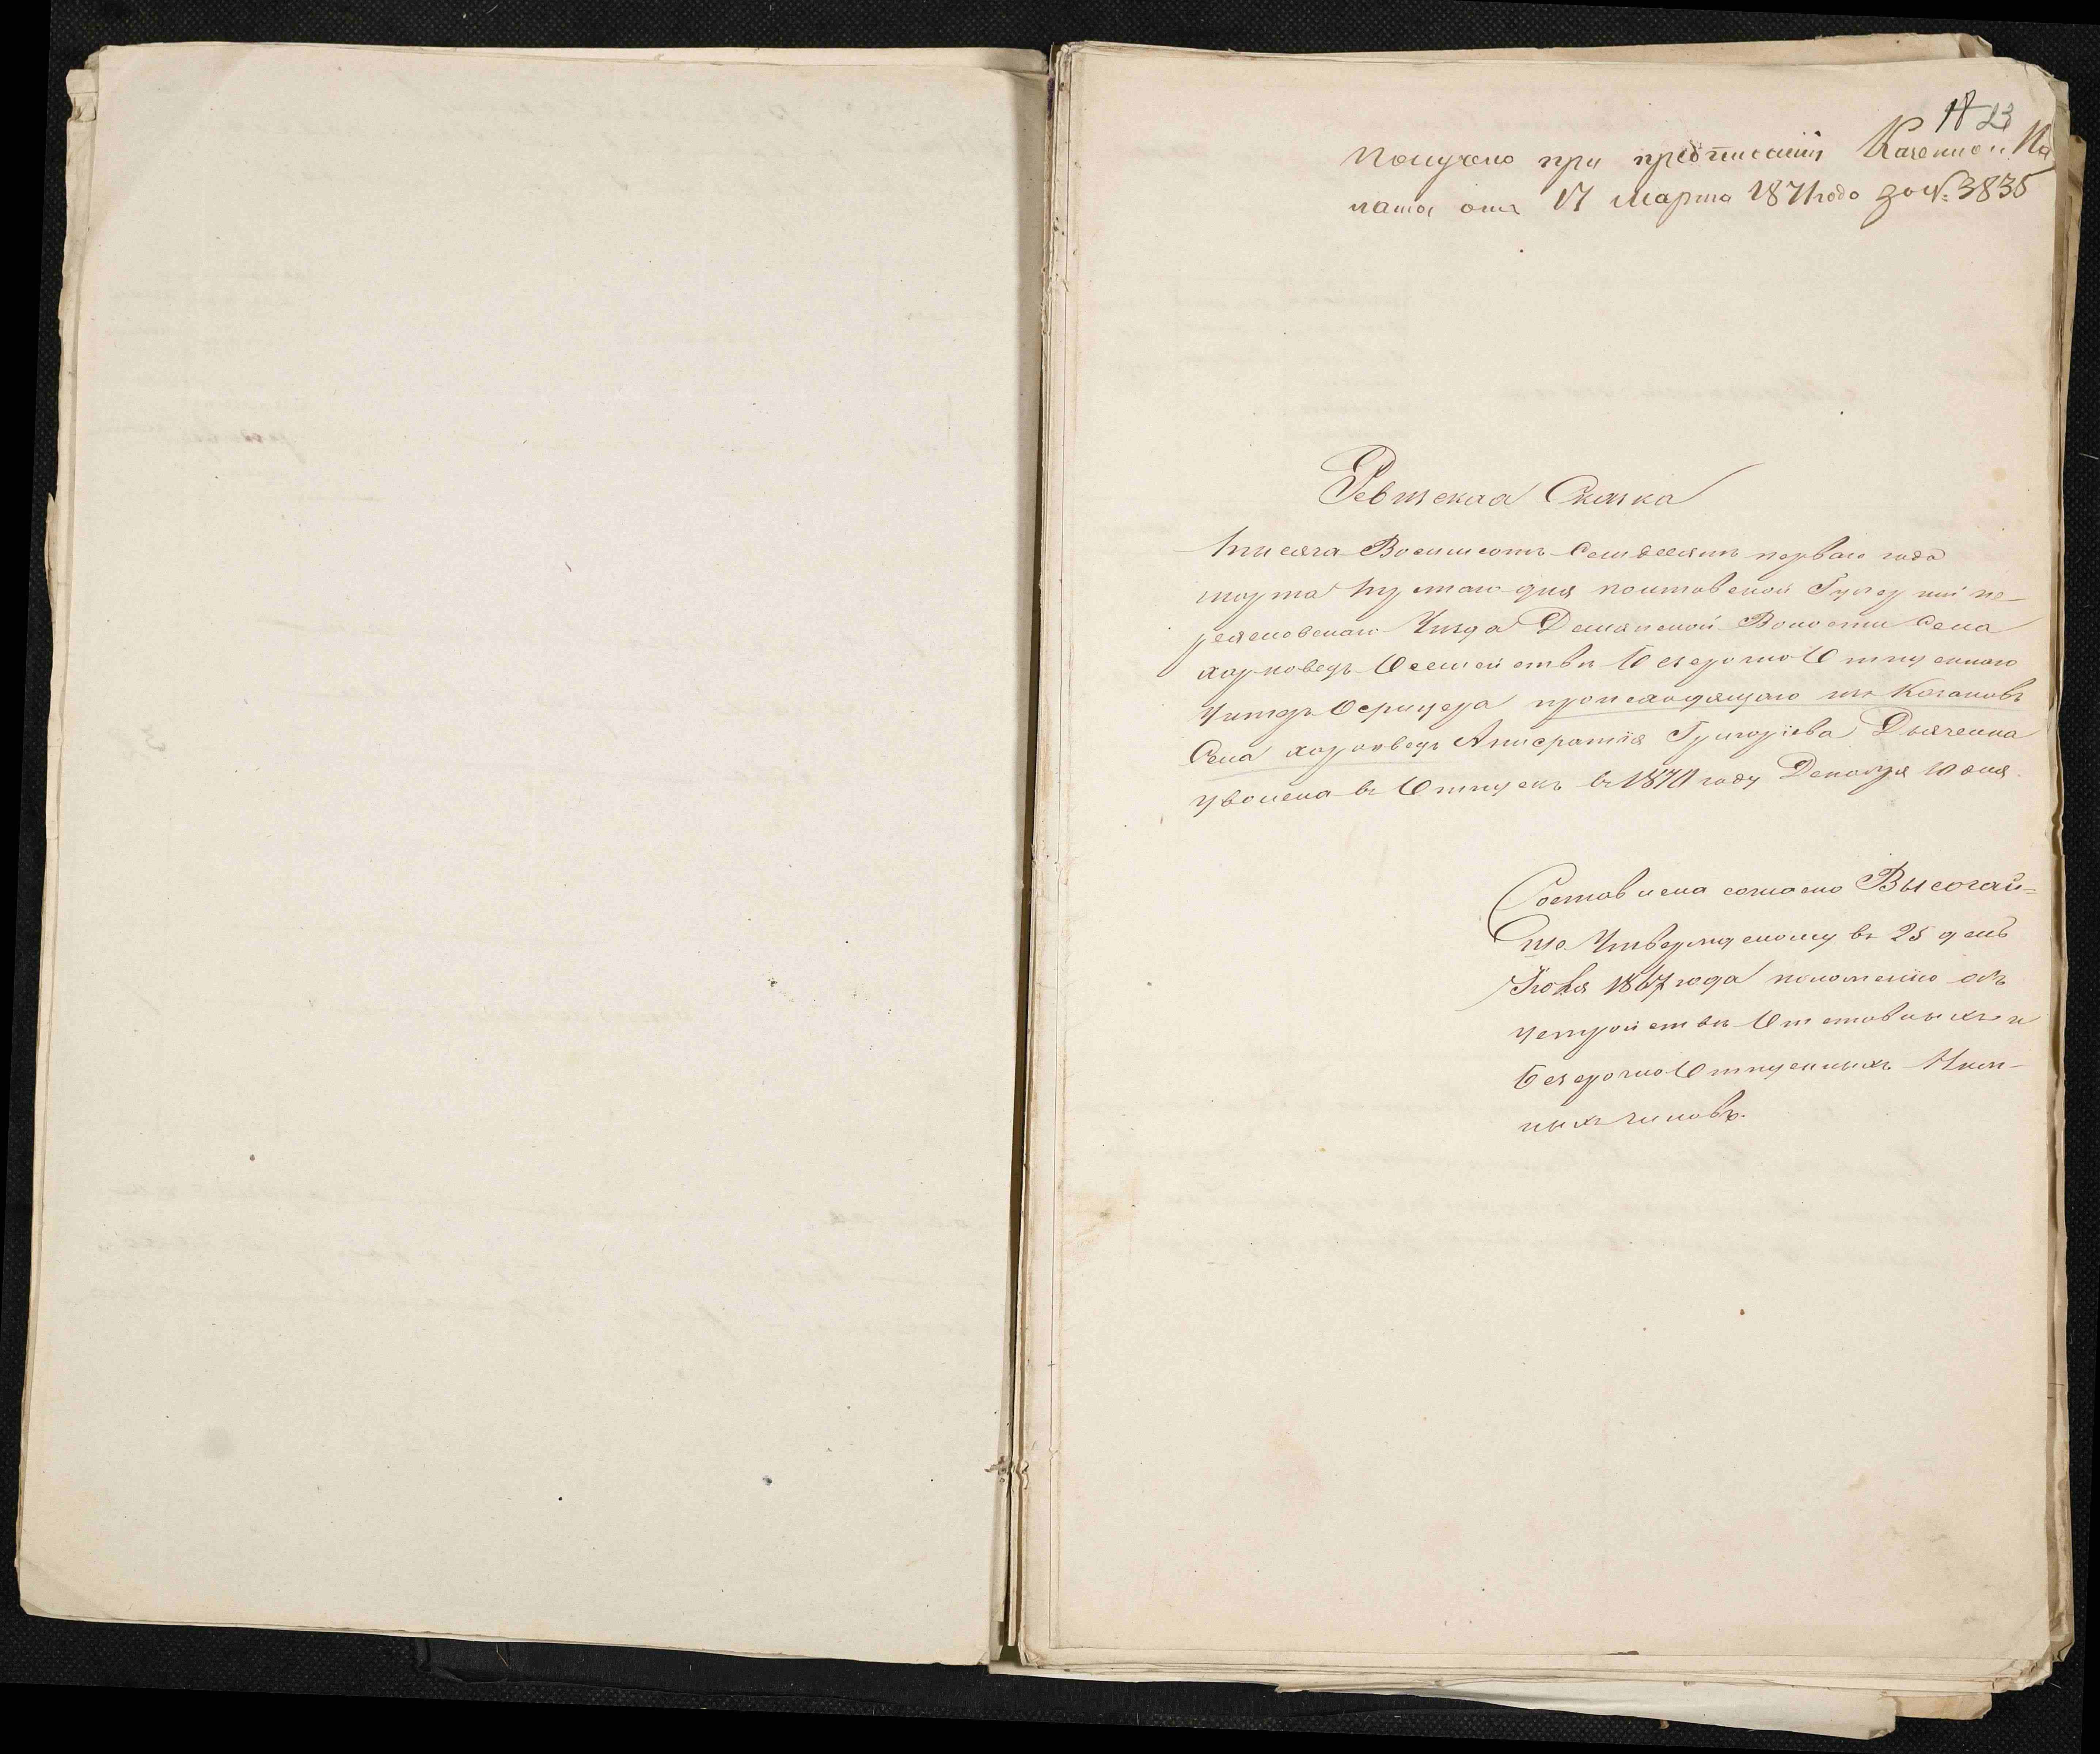 18 23
Получено при предписаніи Казенной Па
латы отъ 17 Марта 1871 года за №. 3835
Ревизская Сказка
тысяча Восимсотъ Семдесятъ перваго года
марта третяго дня полтовской Губерніи пе-
реяславскаго Уезда Демянской Волости Села
харковецъ О семействи Безсрочно Отпускнаго
Унтеръ Офицера происходящаго изъ Козаковъ
Села харковецъ Анисратія Григоріева Дьяченка
уволена въ Отпускъ въ 1870 году Декабря 10 дня.
Составлена согласно Высочай=
ше Утвержденому въ 25 день
Іюня 1867 года положенію объ
устройстви Отставныхъ и
безсрочно Отпускныхъ Ниж-
ныхъ чиновъ.